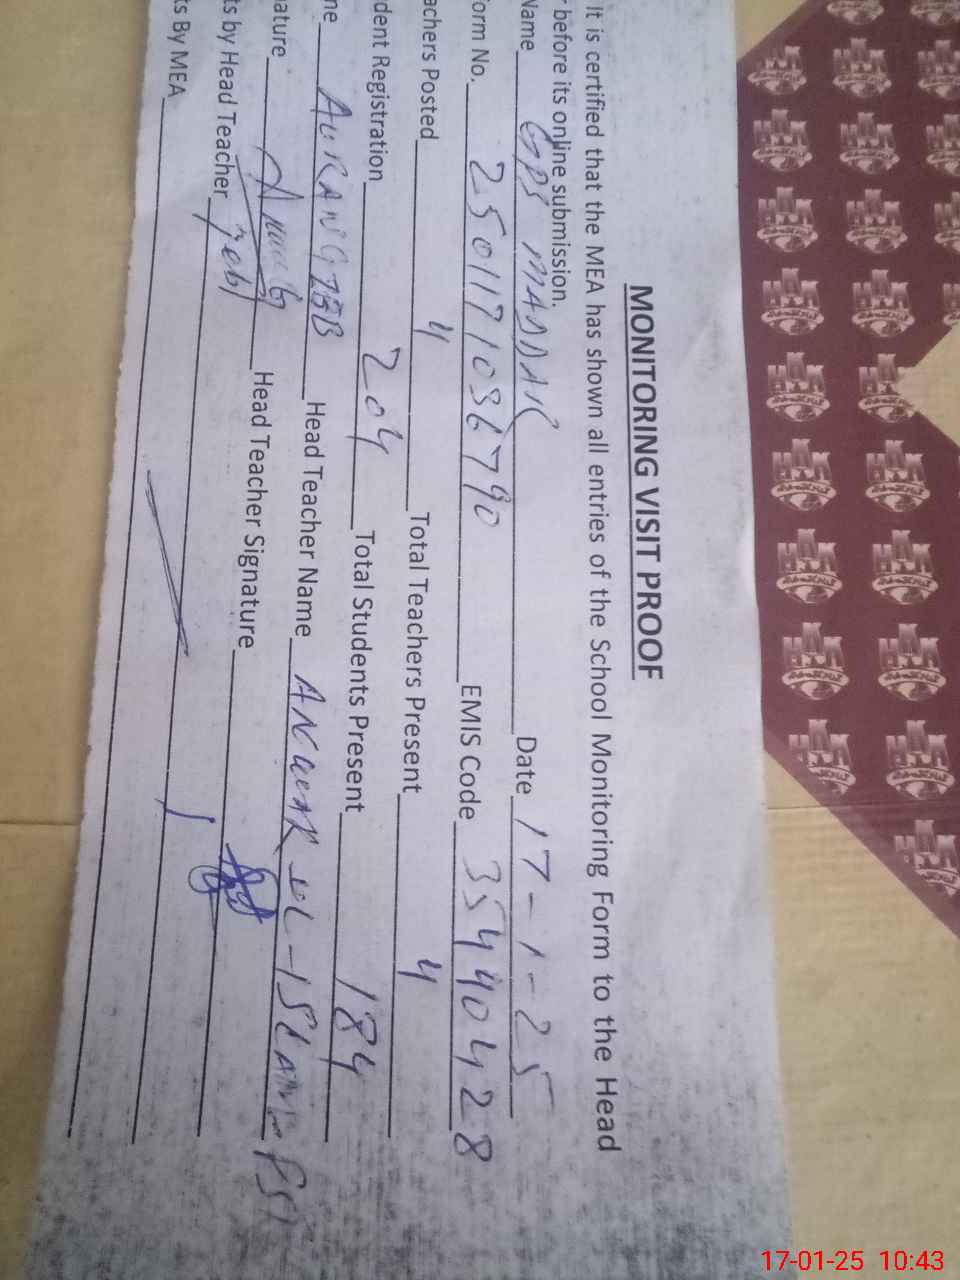 MONITORING VISIT PROOF
it is certified that the MEA has shown all entries of the School Monitoring Form to the Head
before its online submission.
Name GPS MADDAK Date 17-1-25
orm No. 2501171036790 EMIS Code 35440428
achers Posted 4 Total Teachers Present 4
dent Registration 204 Total Students Present 184
me AURANGZEB Head Teacher Name ANWAR UL-ISLAM PST
nature Head Teacher Signature
ts by Head Teacher
ts By MEA
17-01-25 10:43